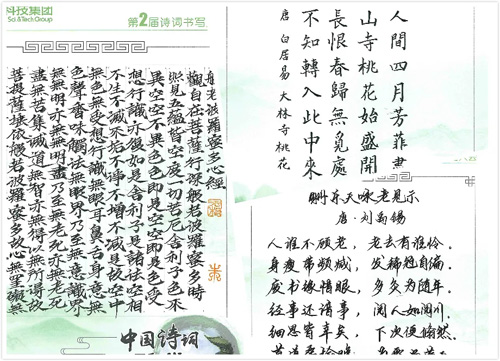 科技集团
Sci &Tech Group
第2届诗词书写
般若波羅蜜多心經
觀自在菩薩行深般若波羅蜜多時
照見五蘊皆空度一切苦厄舍利子色不
異空空不異色色即是空空即是色受
想行識亦復如是舍利子是諸法空相
不生不滅不垢不淨不增不減是故空中
無色無受想行識無眼耳鼻舌身意無
色聲香味觸法無眼界乃至無意識界
無無明亦無無明盡乃至無老死亦無老死
盡無苦集滅道無智亦無得以無所得故
菩提薩埵依般若波羅蜜多故心無罣礙無
中国诗词
人間四月芳菲盡
山寺桃花始盛開
長恨春歸無覓處
不知轉入此中來
唐 白居易 大林寺桃花
酬乐天咏老见示
唐·刘禹锡
人谁不顾老，老去有谁怜。
身瘦带频减，发稀冠自偏。
废书缘惜眼，多灸为随年。
经事还谙事，阅人如阅川。
细思皆幸矣，下次便翛然。